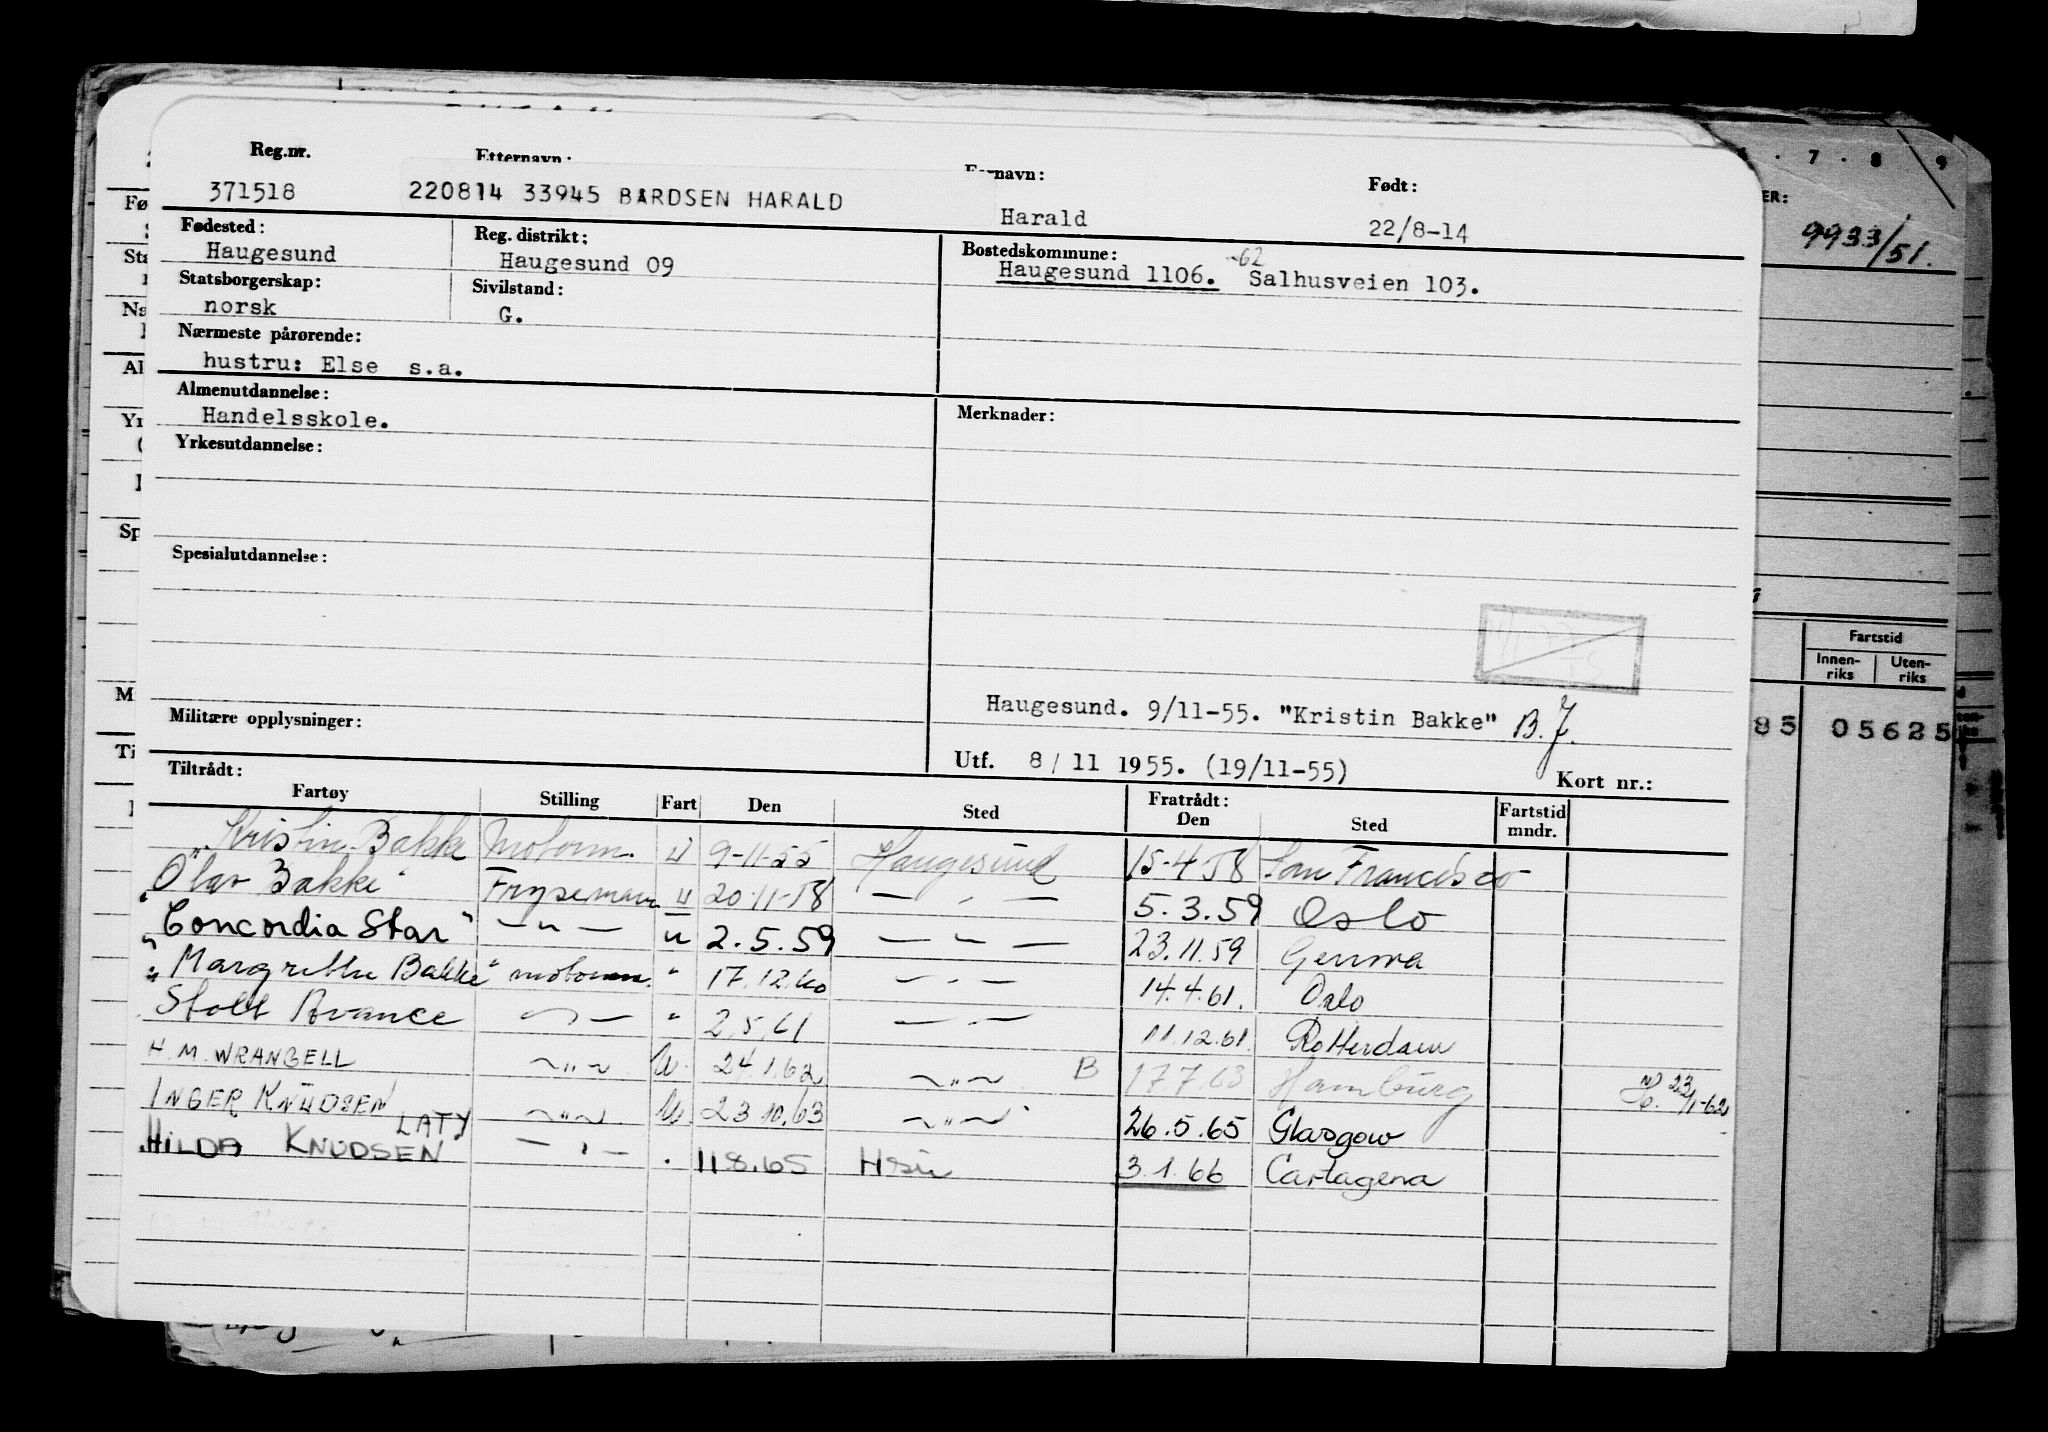 Reg.nr. Etternavn: Fornavn: Født:
371518 220814 33945 BÅRDSEN HARALD Harald 22/8-14
Fødested: Reg. distrikt: Bostedskommune:
Haugesund Haugesund 09 Haugesund 1106. -62 Salhusveien 103.
Statsborgerskap: Sivilstand:
norsk G.
Nærmeste pårørende:
hustru: Else s.a.
Almenutdannelse: Merknader:
Handelsskole.
Yrkesutdannelse:
Spesialutdannelse:
Haugesund. 9/11-55. "Kristin Bakke" B.J.
Militære opplysninger:
Utf. 8/11 1955. (19/11-55) Kort nr.:
Tiltrådt: Fratrådt:
Fartøy Stilling Fart Den Sted Den Sted Fartstid mndr.
"Kristin Bakke Motorm. U 9-11-55 Haugesund 15-4-58 San Francisco
"Olav Bakke" Frysemann U 20-11-58 — " — 5.3.59 Oslo
"Concordia Star" — " — u 2.5.59 — " — 23.11.59 Genova
"Margrethe Bakke" motorm. " 17.12.60 — " — 14.4.61. Oslo
Stolt Avance — " — " 2.5.61 — " — 11.12.61. Rotterdam
H. M. WRANGELL — " — U. 24.1.62 — " — B 17.7.63 Hamburg
23/1-62
INGER KNUDSEN — " — U. 23.10.63 — " — 26.5.65 Glasgow
LATY
HILDA KNUDSEN — " — " 11.8.65 3.1.66 Cartagena
7 · 8 9
ER:
9933/51.
Fartstid
Innen-riks Uten-riks
85 05625